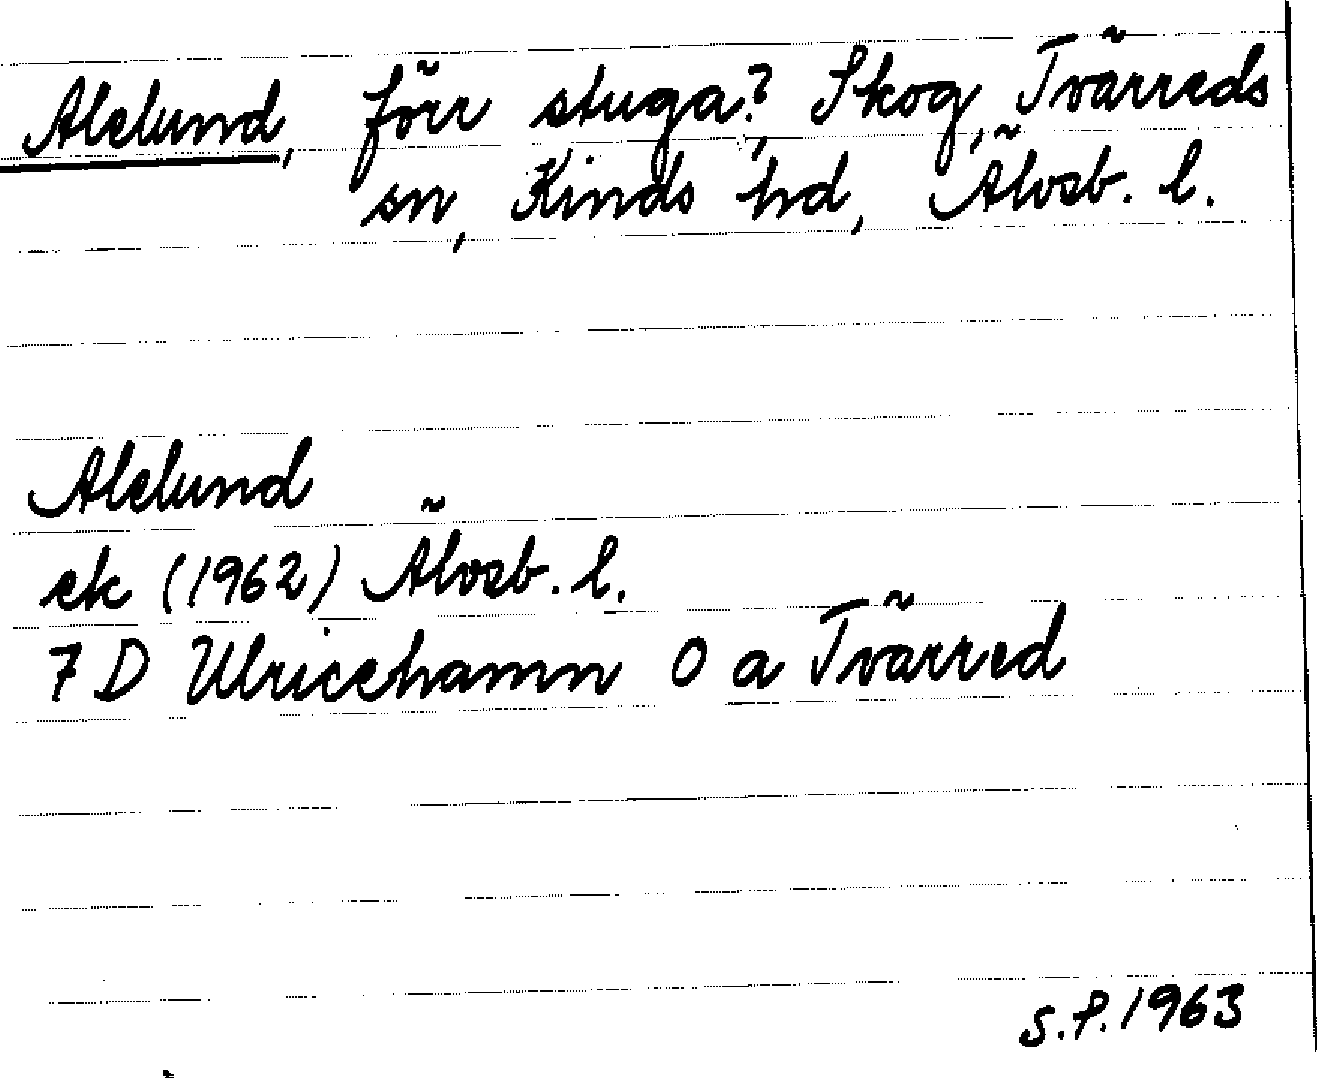 Alelund, förr stuga?, Skog, Tvärreds
sn, Kinds hd, Älvsb. l.
Alelund
ek (1962) Älvsb. l.
7 D Ulricehamn 0 a Tvärred
S.P. 1963